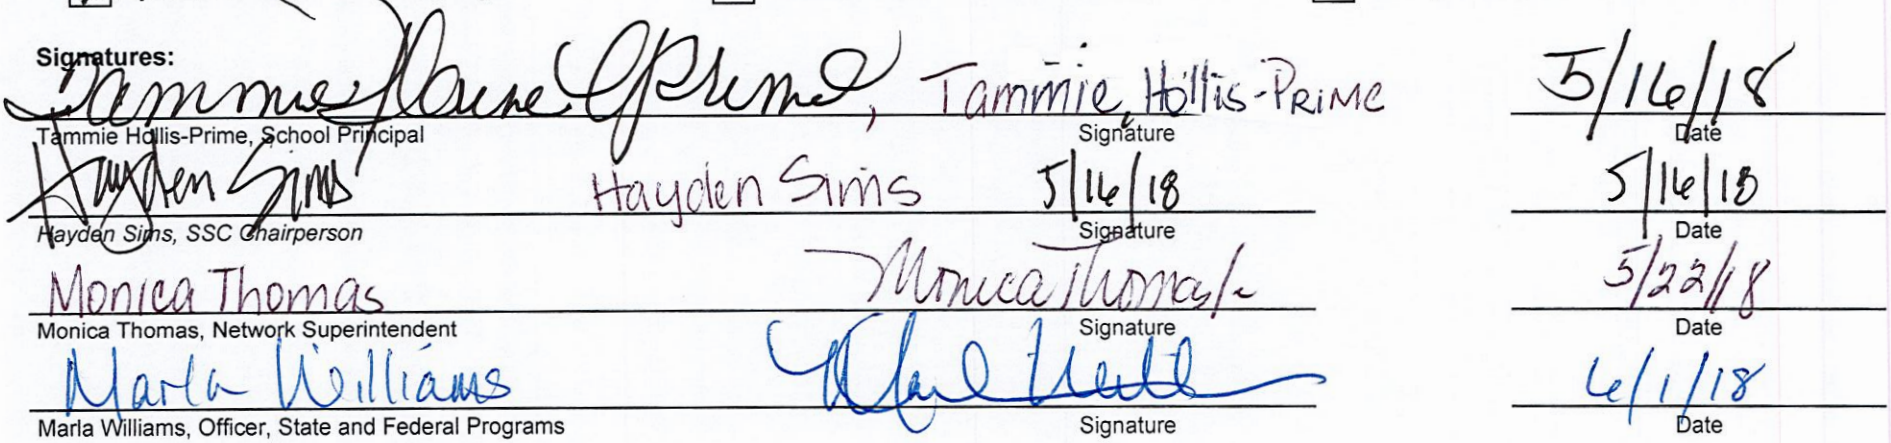 Signatures:
Tammie Prime, Tammie Hollis-Prime 5/16/18
Tammie Hollis-Prime, School Principal Signature Date
Hayden Sims Hayden Sims 5/16/18 5/16/18
Hayden Sims, SSC Chairperson Signature Date
Monica Thomas Monica Thomas 5/22/18
Monica Thomas, Network Superintendent Signature Date
Marla Williams 6/1/18
Marla Williams, Officer, State and Federal Programs Signature Date